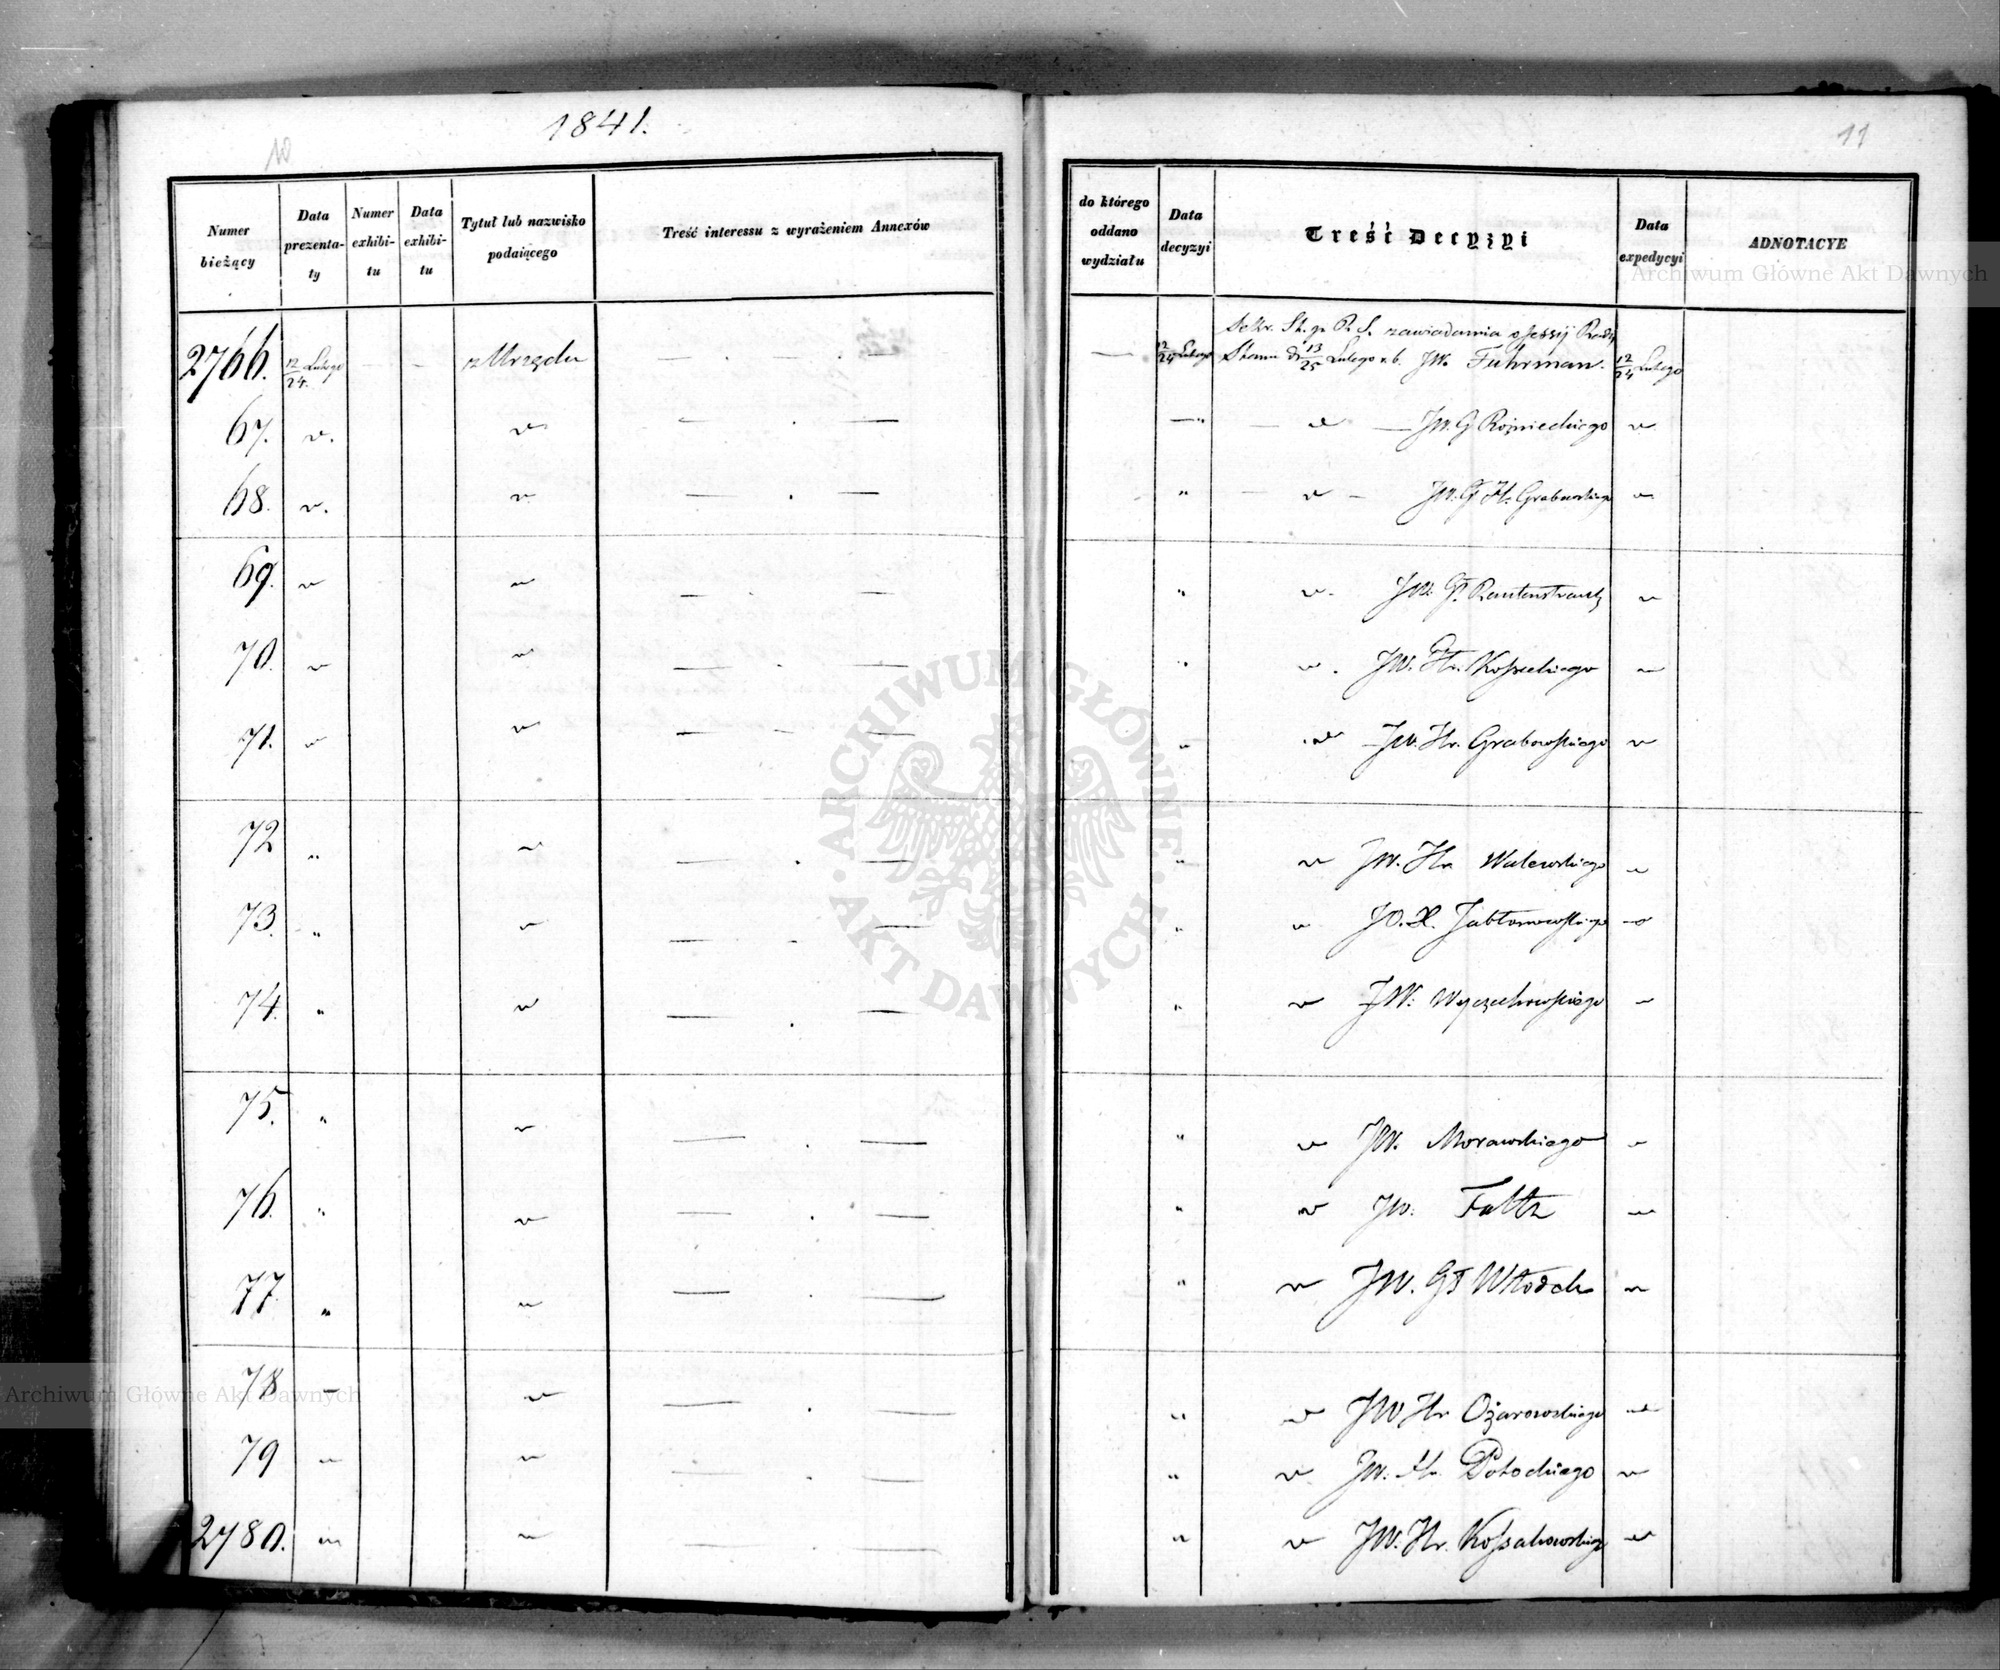 1841.
10
11
Numer bieżący
Data prezenta-ty
Numer exhibi-tu
Data exhibi-tu
Tytuł lub nazwisko podaiącego
Treść interessu z wyrażeniem Annexów
do którego oddano wydziału
Data decyzyi
Treść Decyzyi
Data expedycyi
ADNOTACYE
Archiwum Główne Akt Dawnych
Sekr. St. pr. R. S. zawiadamia o Sessyj Rady
2766. 12/24. Lutego — - z Urzędu — . — . — — 12/24 Lutego Stanu d. 13/25 Lutego r.b. JW. Fuhrman. 12/24 Lutego
67. v. v. — . — — " — v — JW. G Rożnieckiego v.
68. v. v — . — " — v — JW. Gł Hr. Grabowskiego v
69. v v — . — " v. JW. Gł. Rautenstrauch v
70. v v — . — " v. JW. Hr. Kosseckiego v
71. v v — - — " v JW. Hr. Grabowskiego v
72 " v — . — " v JW. Hr. Walewskiego v
73. " v — - — " v JO. X. Jabłonowskiego v
74. " v — . — " v JW. Wyczechowskiego v
75. " v — . — " v JW. Morawskiego v
76. " v — . — " v JW. Faltz v
77. " v — . — " v JW. Gł Włodek v
78 v v — . — " v JW Hr Ożarowskiego v
79 v v — . — " v JW. Hr. Potockiego v
2780. v v — . — " v JW. Hr. Kossakowskiego v
ARCHIWUM GŁÓWNE · AKT DAWNYCH ·
Archiwum Główne Akt Dawnych